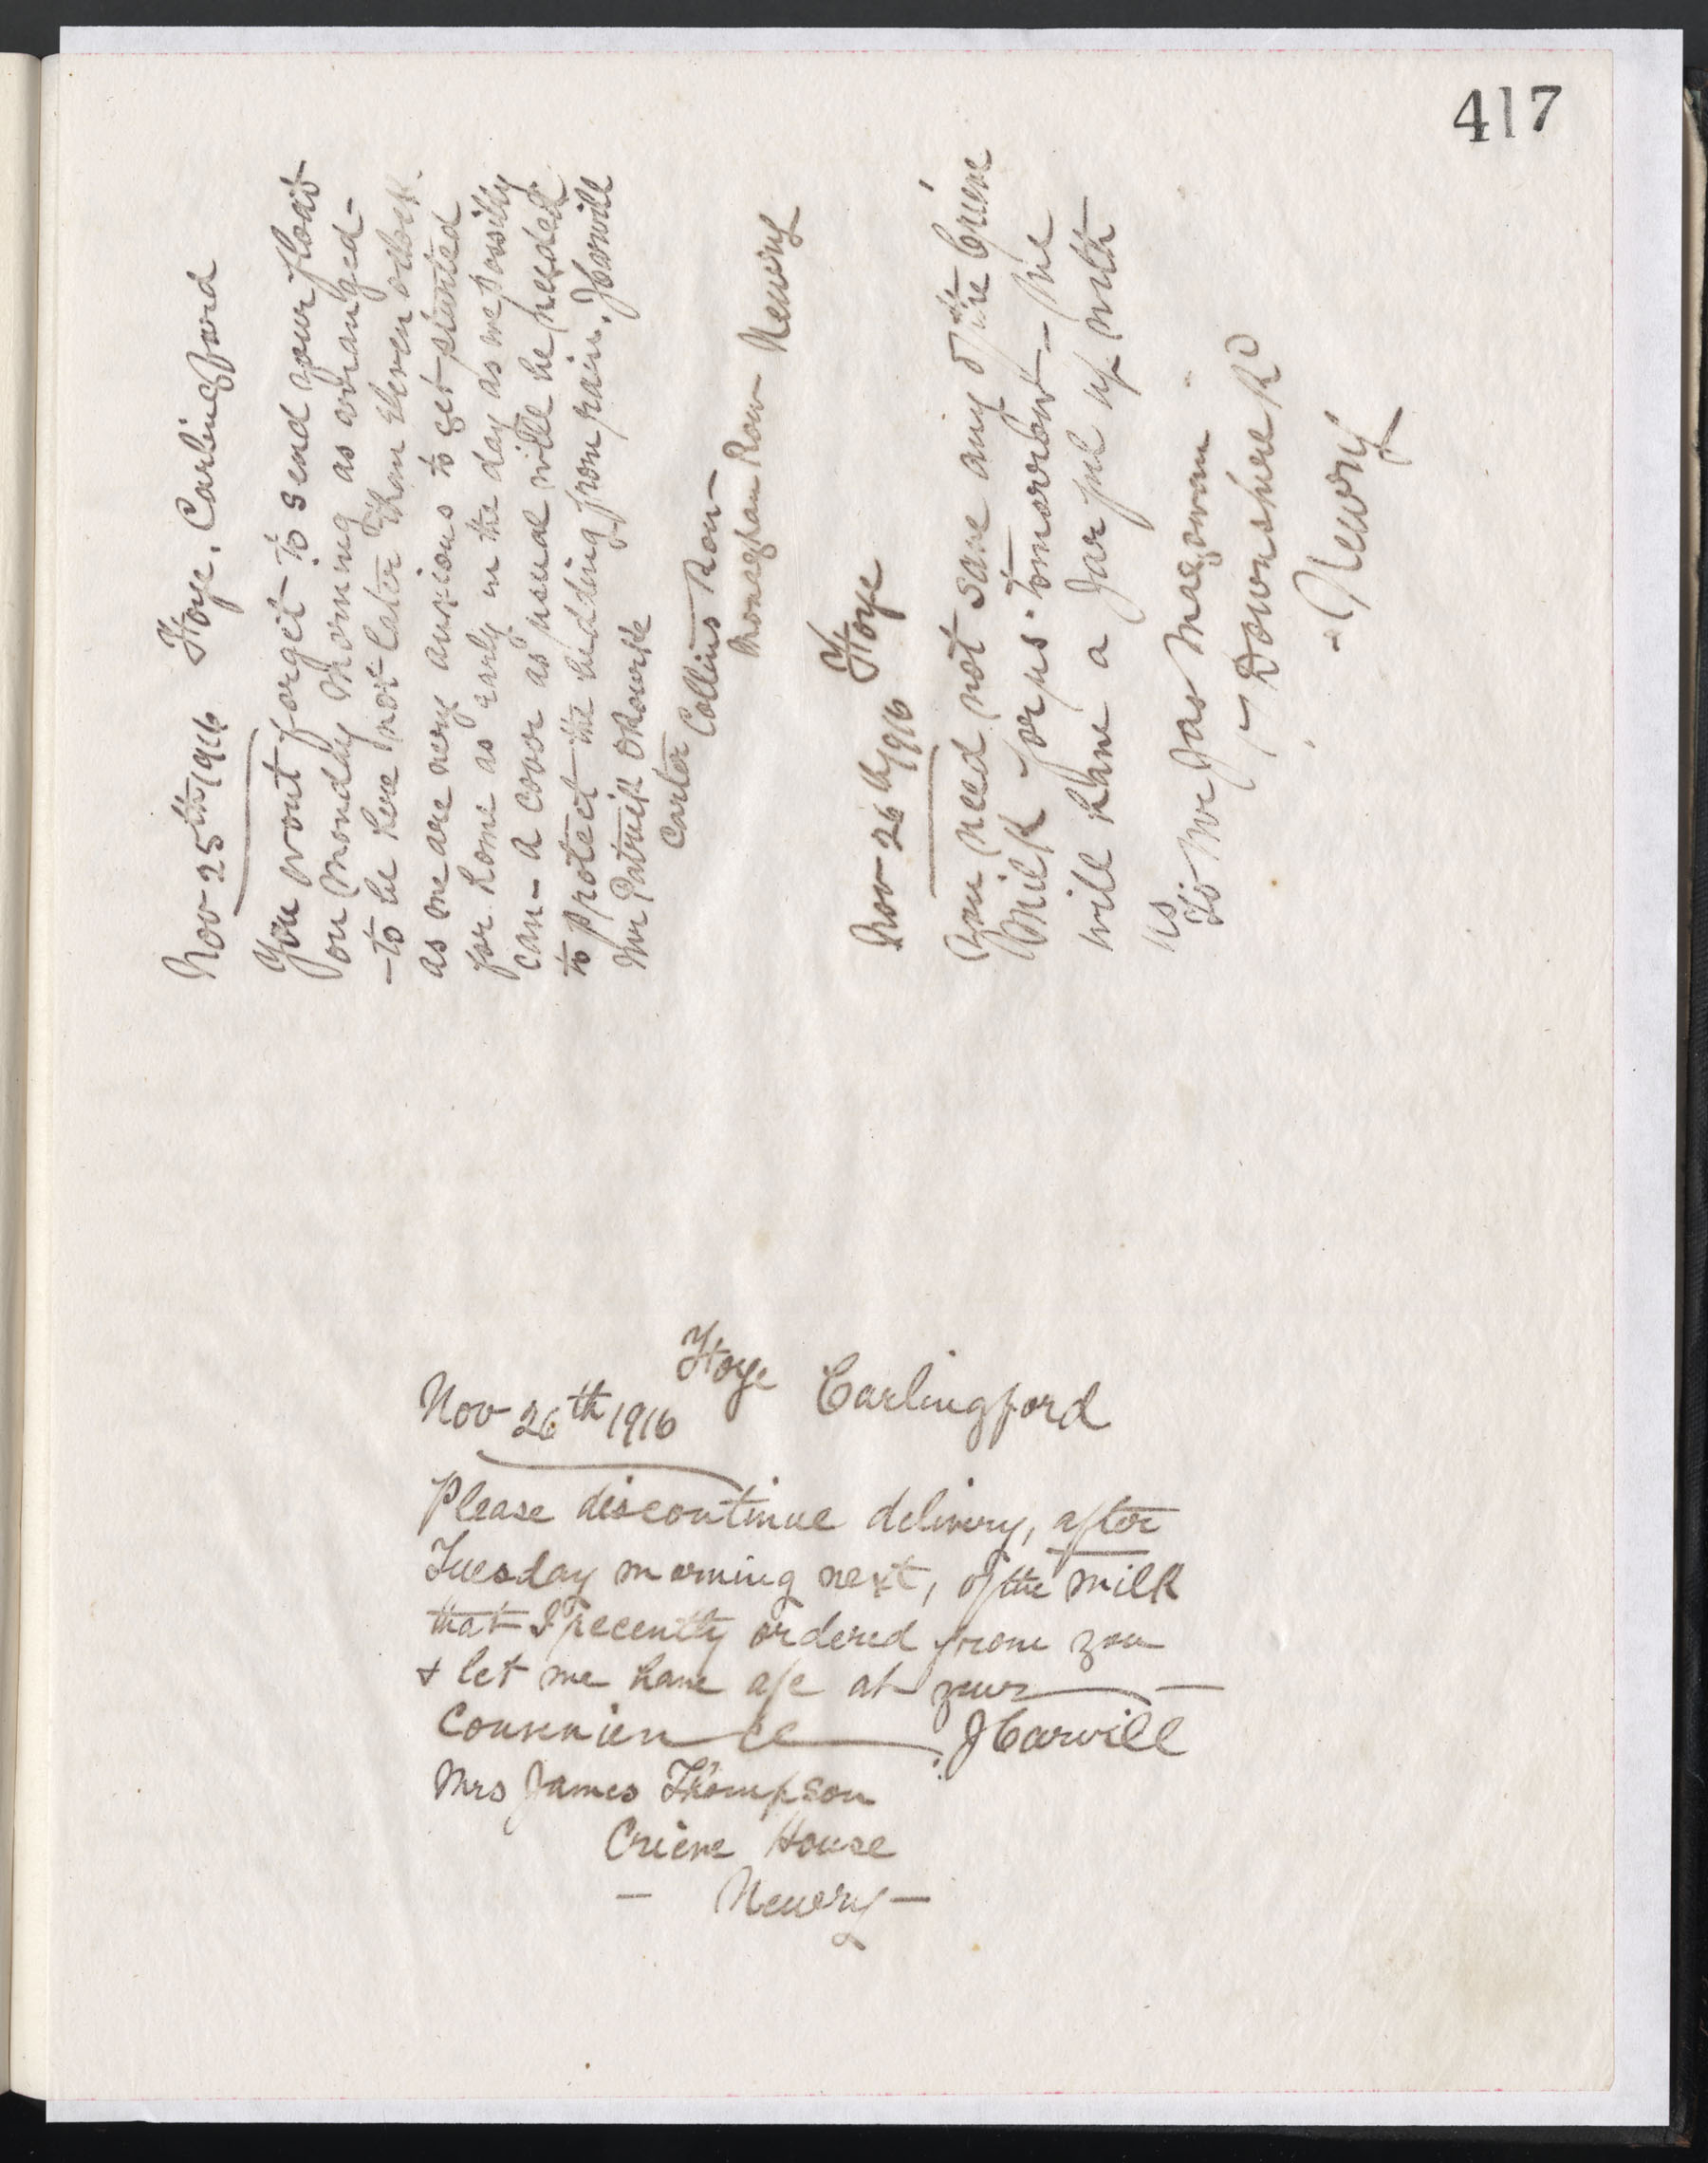 417
Nov 25th 1916 Hoye, Carlingford
You wont forget to send your float
on Monday Morning as arranged -
- to be here not later than eleven oclock
as we are very anxious to get started
for home as early in the day as we possibly
can - A cover as usual will be needed
to protect the bedding from rain. JCarvill
Mr Patrick ORourke
Carter Collins Row
Monaghan Row Newry
Nov 26th 1916 Hoye
You need not save any of the Crieve
Milk for us tomorrow - We
will have a Jar full of milk
Mr Jas Magowan
7 Downshire Rd
- Newry
Hoye Carlingford
Nov 26th 1916
Please discontinue delivery, after
Tuesday morning next, of the milk
that I recently ordered from you
& let me have a/c at your —
Convenience JCarvill
Mrs James Thompson
Crieve House
- Newry -